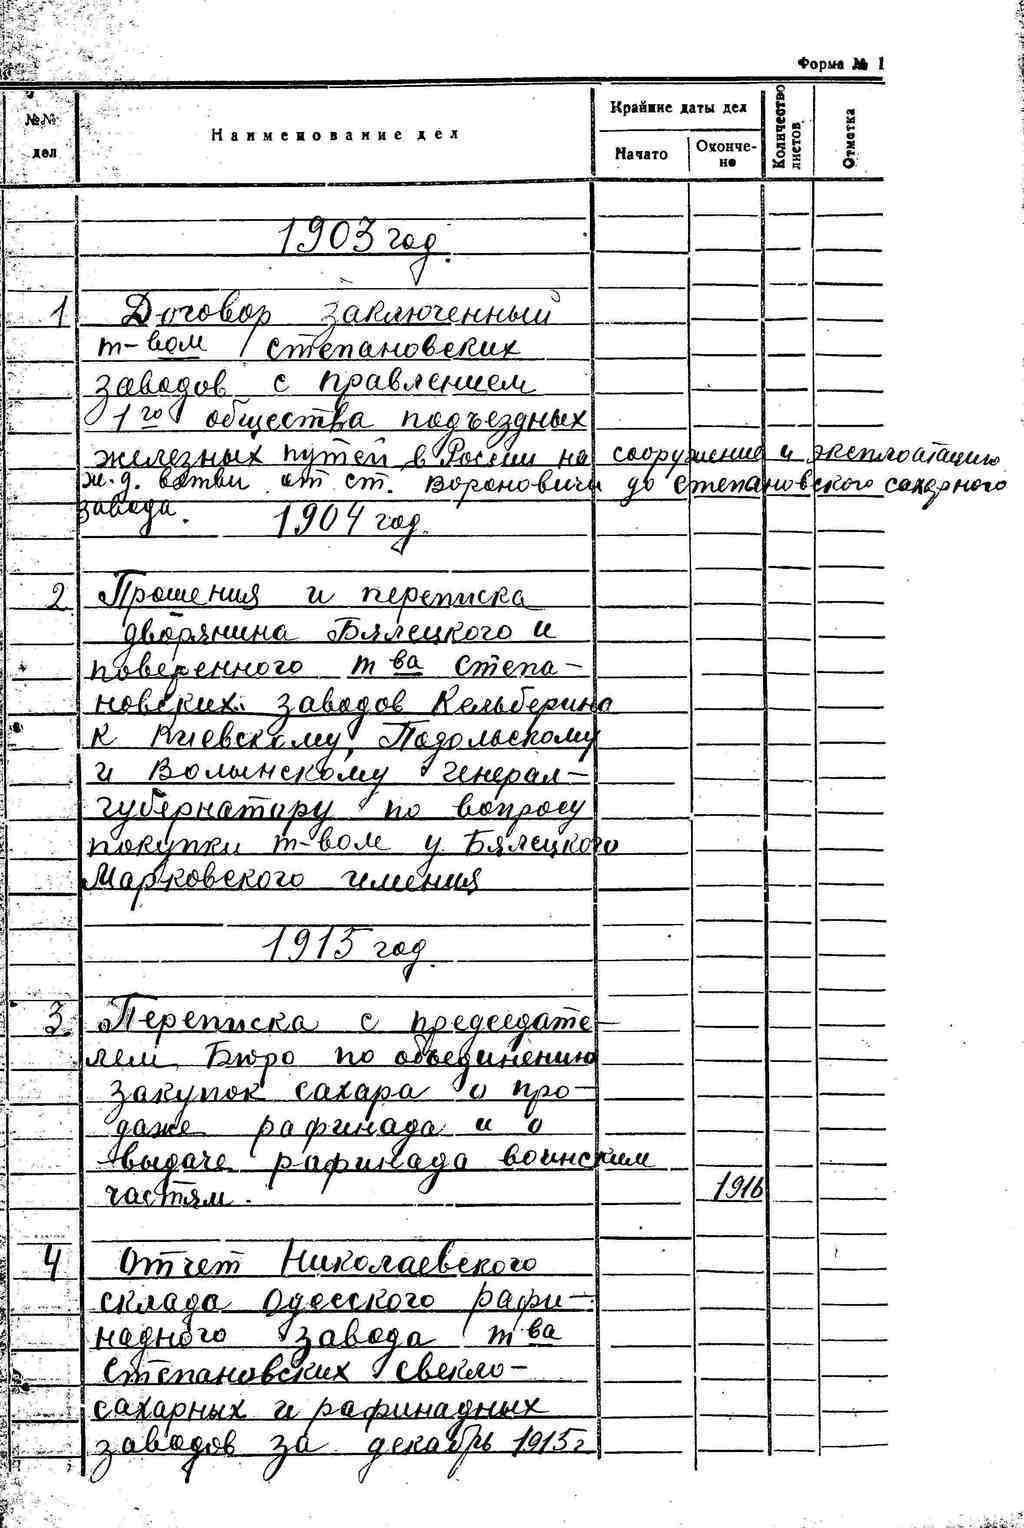 Форма № 1
№№ дел
Наименование дел
Крайние даты дел
Начато
Окончено
Количество листов
Отметка
1903 год.
1 Договор заключенный
т-вом степановских
заводов с правлением
1го общества подъездных
железных путей в России на сооружение и эксплоатацию
ж.д. ветви от ст. Вороновичи до степановского сахарного
завода.
1904 год.
2 Прошения и переписка
дворянина Бялецкого и
поверенного т ва Степа-
новских заводов Кельберина
к Киевскому, Подольскому
и Волынскому генерал-
губернатору по вопросу
покупки т-вом у Бялецкого
Марковского имения
1915 год.
3 Переписка с председате-
лем Бюро по объединению
закупок сахара о про-
даже рафинада и о
выдаче рафинада воинским
частям. 1916
4 Отчет Николаевского
склада Одесского рафи-
надного завода т ва
Степановских свекло-
сахарных и рафинадных
заводов за декабрь 1915г